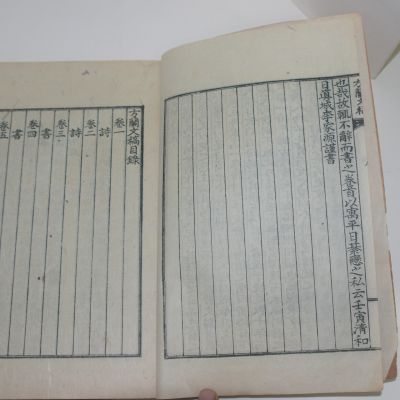 方蘭文稿
也哉故輒不辭而書之卷首以寓平日慕戀之私云壬寅清和
日眞城李家源謹書
方蘭文稿目錄
卷一
詩
卷二
詩
卷三
書
卷四
書
卷五